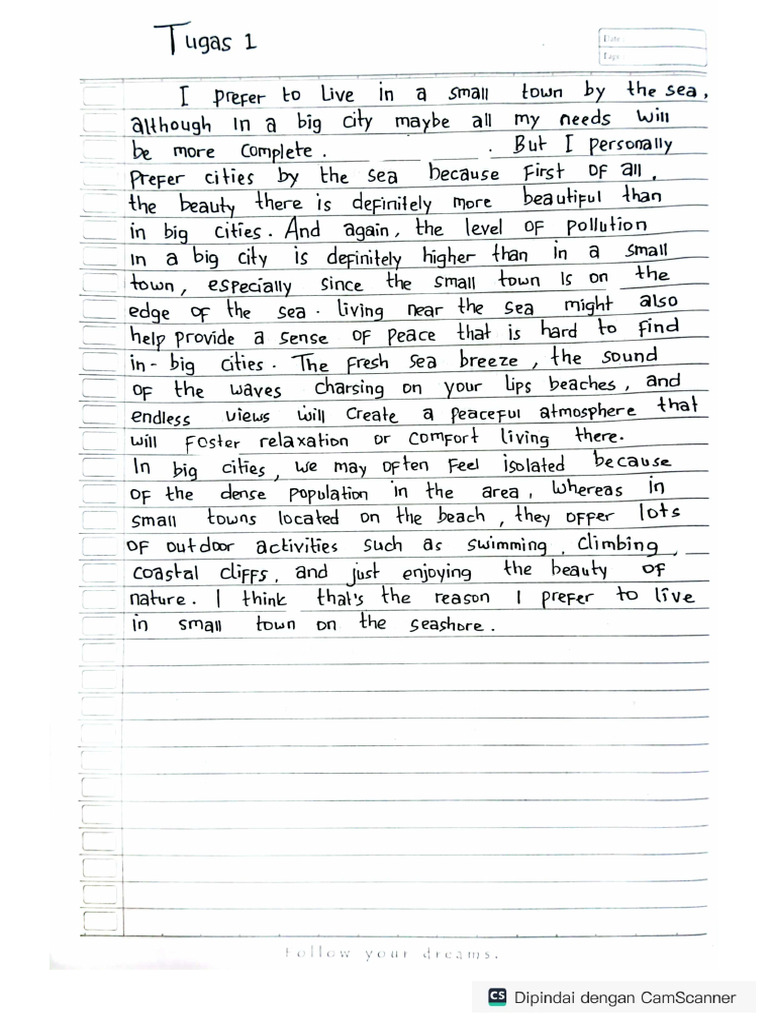 Tugas 1
Date
Page
I prefer to live in a small town by the sea,
although in a big city maybe all my needs will
be more complete. . But I personally
prefer cities by the sea because first of all,
the beauty there is definitely more beautiful than
in big cities. And again, the level of pollution
in a big city is definitely higher than in a small
town, especially since the small town is on the
edge of the sea. living near the sea might also
help provide a sense of peace that is hard to find
in - big cities. The fresh sea breeze, the sound
of the waves charsing on your lips beaches, and
endless views will create a peaceful atmosphere that
will foster relaxation or comfort living there.
In big cities, we may often feel isolated because
of the dense population in the area, whereas in
small towns located on the beach, they offer lots
of outdoor activities such as swimming, climbing,
coastal cliffs, and just enjoying the beauty of
nature. I think that's the reason I prefer to live
in small town on the seashore.
Follow your dreams.
CS Dipindai dengan CamScanner